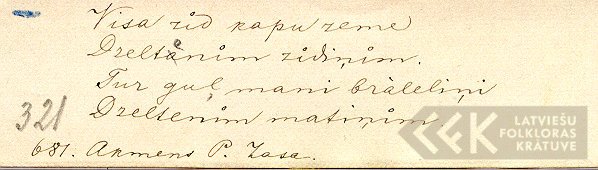 Visa zid kapu zeme
Dzeltànim zidiņim.
Tur guļ mani bràleliņi
Dzeltenim matiņim.
321
681. Akmens P. Zasa.
LATVIEŠU
FOLKLORAS
KRĀTUVE